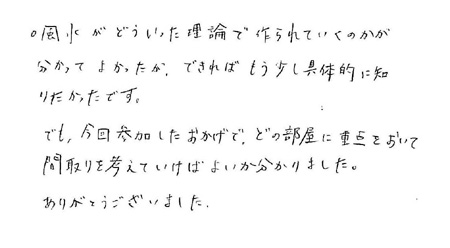 ○風水がどういった理論で作られていくのかが
分かってよかったが、できればもう少し具体的に知
りたかったです。
でも、今回参加したおかげで、どの部屋に重点をおいて
間取りを考えていけばよいか分かりました。
ありがとうございました.